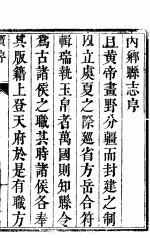 內鄉縣志序
且黃帝畫野分疆而封建之制
以立虞夏之際廵省方岳合符
輯瑞執玉帛者萬國則知縣令
爲古諸侯之職其時諸侯各奉
其版籍上登天府於是有職方